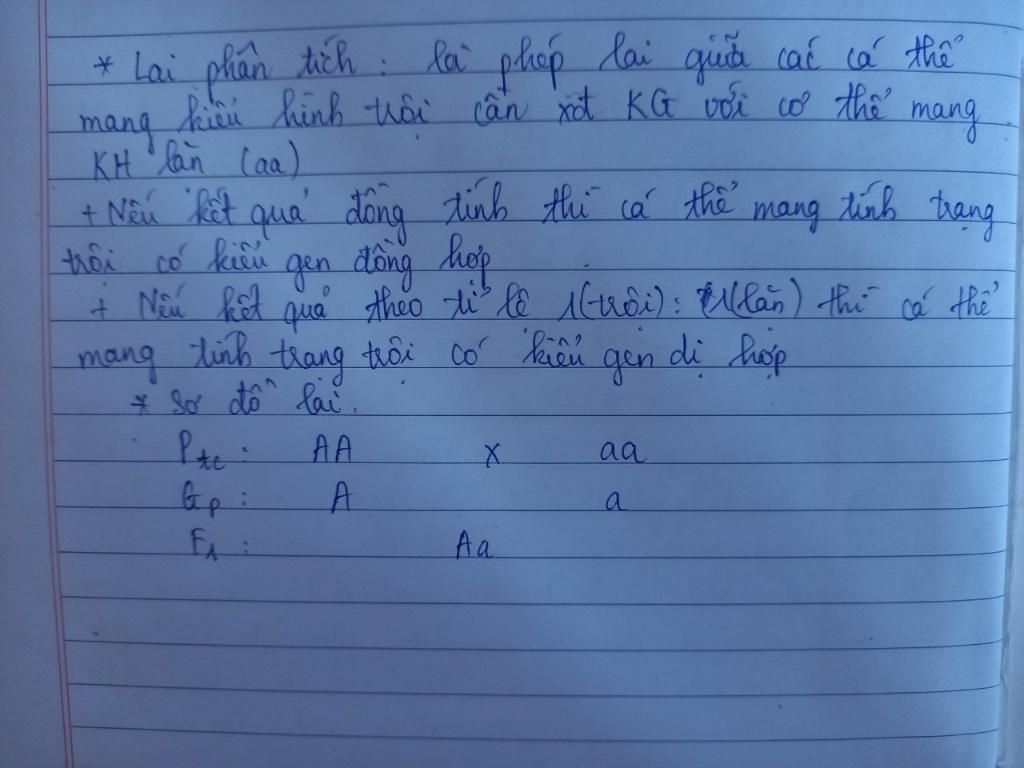 * Lai phân tích : là phép lai giữa các cá thể
mang kiểu hình trội cần xét KG với cơ thể mang
KH lặn (aa)
+ Nếu kết quả đồng tính thì cá thể mang tính trạng
trội có kiểu gen đồng hợp
+ Nếu kết quả theo tỉ lệ 1(trội) : 1(lặn) thì cá thể
mang tính trạng trội có kiểu gen dị hợp
* Sơ đồ lai.
Ptc : AA x aa
Gp : A a
F1 : Aa